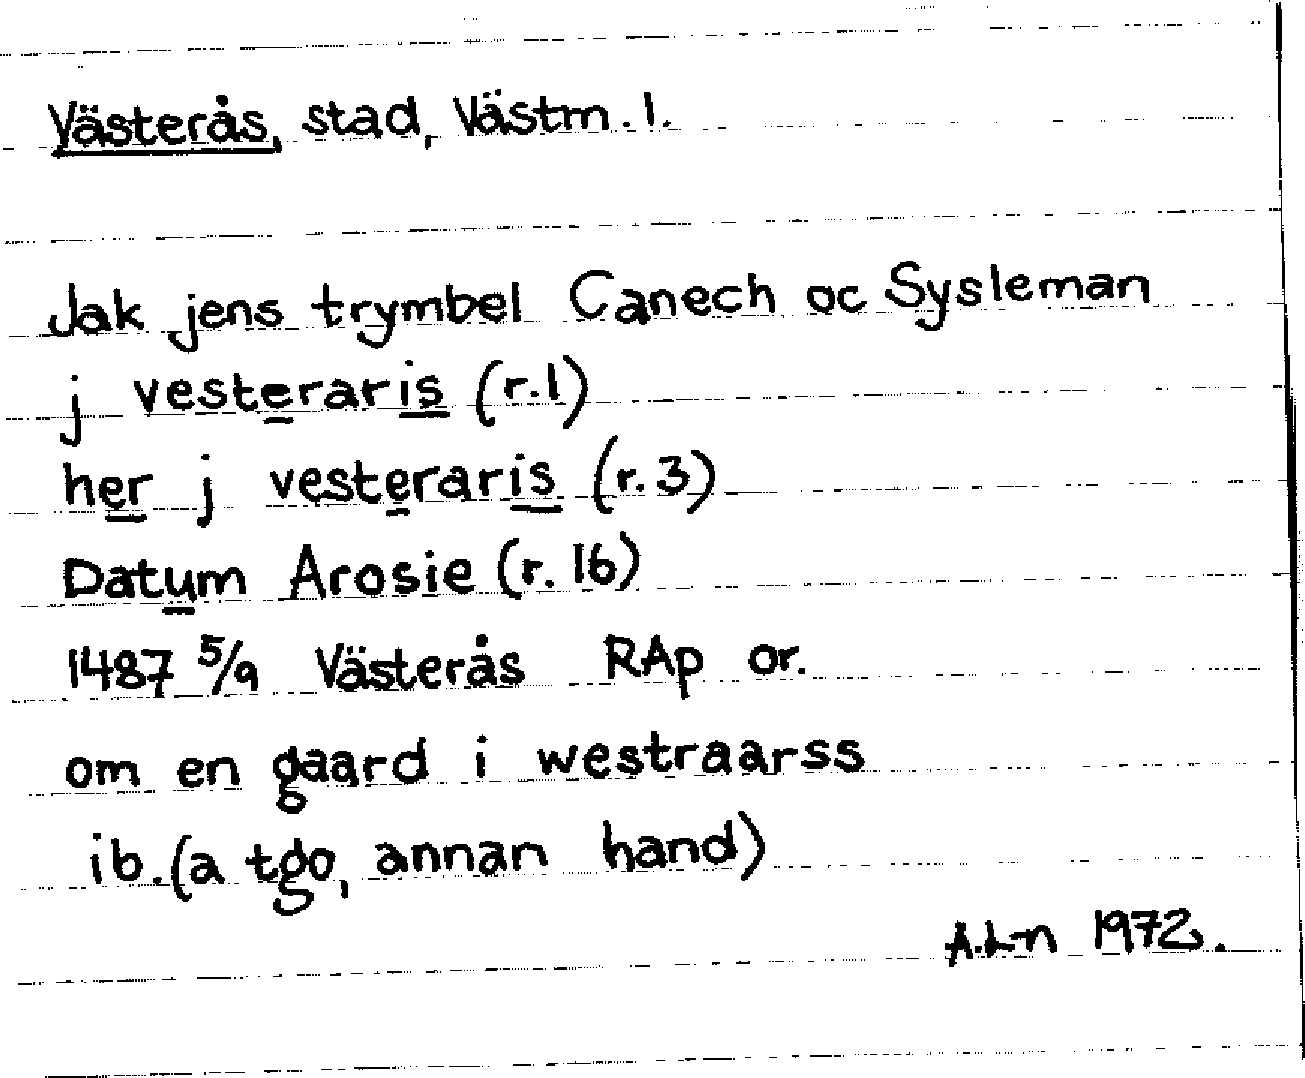 Västerås, stad, Västm. l.
Jak jens trymbel Canech oc Sysleman
j vesteraris (r.1)
her j vesteraris (r.3)
Datum Arosie (r.16)
1487 5/9 Västerås RAp or.
om en gaard i westraarss
ib. (a tgo, annan hand)
A.L-n 1972.